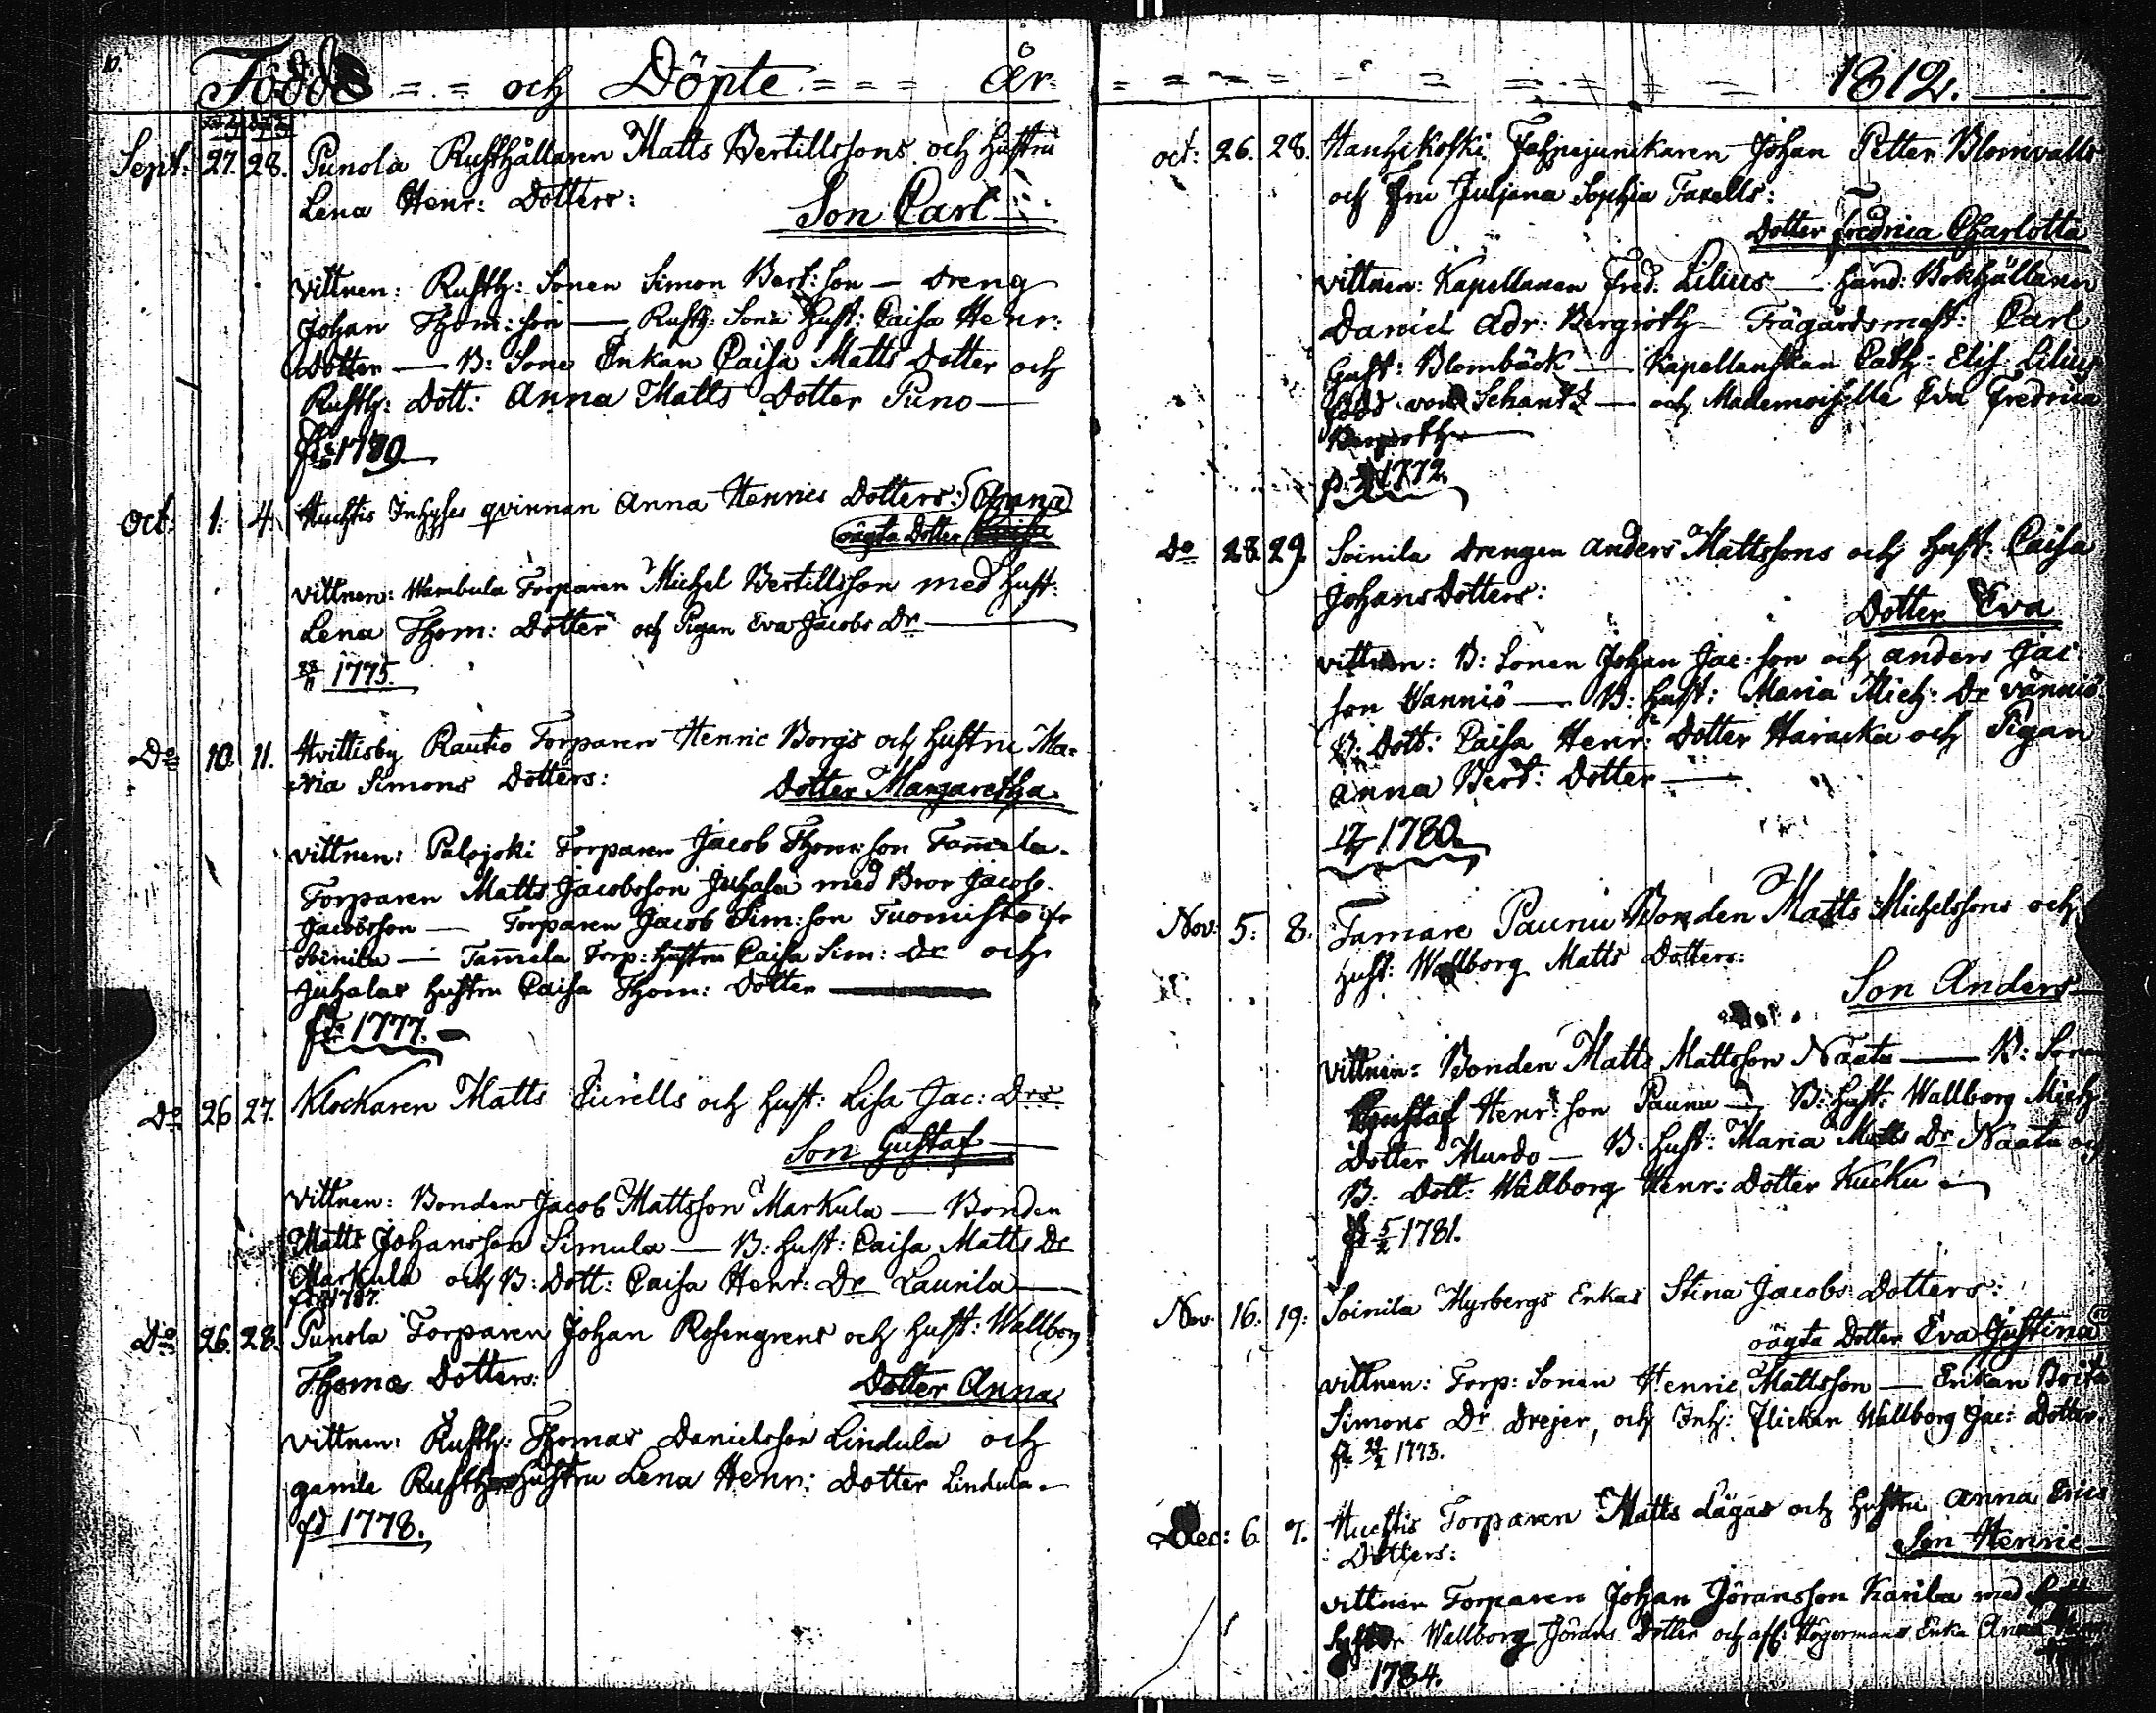 Födde = = och Döpte = = = År
Sept: 27. 28. Punola Rusthållaren Matts Bertillssons och hustru
Lena Henr: Dotters:
Son Carl
Vittnen: Rusth: Sonen Simon Bert: son — Dreng
Johan Thom: son — Rusth: Sona Hust: Caisa Henr:
Dotter — B: Sone Enkan Caisa Matts Dotter och
Rusth: Dott: Anna Matts Dotter Puno —
1789
Oct: 1. 4. Huchtis Inhyses qvinnan Anna Henrics Dotters: Anna
oägta Dotter
vittnen: Wambula Torparen Michel Bertillsson med hust:
Lena Thom: Dotter och Pigan Eva Jacobs Dr
1775.
Do 10. 11. Hvittisby Rautio Torparen Henric Borgs och hustru Ma=
ria Simons Dotters:
Dotter Margaretha
vittnen: Palojoki Torparen Jacob Thom: son Tamela
Torparen Matts Jacobsson Juhala med Bror Jacob
Jacobsson — Torparen Jacob Sim: son Tuomisto ifr
Soinila — Tamela Torp: hustru Caisa Sim: Dr och
Juhalas hustru Caisa Thom: Dotter
1777.
Do 26 27. Klockaren Matts Curells och hust: Lisa Jac: Drs
Son Gustaf
Vittnen: Bonden Jacob Mattsson Markula — Bonden
Matts Johansson Simula — B: hust: Caisa Matts Dr
Markula och B: Dott: Caisa Henr: Dr Launila
1787.
Do 26. 28. Punola Torparen Johan Rosengrens och hust: Wallborg
Thomæ Dotters:
Dotter Anna
Vittnen: Rusth: Thomas Danielsson Lindula och
gamla Rusth: hustru Lena Henr: Dotter Lindula
fd 1778.
1812.
oct: 26. 28. Hanhikoski Fahnejunkaren Johan Petter Blomvalls
och Fru Juliana Sophia Faxells:
Dotter Fredrica Charlotta
Vittnen: Kapellanen Fred. Lilius — Hand: Bokhållaren
Daniel Adr: Bergroth — Trägårdsmäst: Carl
Gust: Blombäck — Kapellanskan Cath: Elis: Lilius
född von Schantz — och Mademoiselle Eva Fredrica
Bergroth
1772
Do 28. 29. Soinila Drengen Anders Mattssons och hust: Caisa
Johans Dotters:
Dotter Eva
vittnen: B: Sonen Johan Jac: son och Anders Jac:
son Wanniö — B: hust: Maria Mich: Dr Wänniö
B: Dott: Caisa Henr: Dotter Haracka och Pigan
Anna Bert: Dotter —
1780.
Nov. 5: 8. Tamare Paunu Bonden Matts Michelssons och
hust: Wallborg Matts Dotters:
Son Anders
Vittnen: Bonden Matts Mattsson Naatu — B: Sonen
Gustaf Henr: son Paunu — B: hust: Wallborg Mich:
Dotter Murdo — B: hust: Maria Matts Dr Naatu och
B: Dott: Wallborg Henr: Dotter Kucku
5/2 1781.
Nov. 16. 19. Soinila Myrbergs Enkas Stina Jacobs Dotters:
oägta Dotter Eva Justina
vittnen: Torp: Sonen Henric Mattsson — Enkan Brita
Simons Dr Drejer, och Inh: Flickan Wallborg Jac: Dotter
1773.
Dec: 6. 7. Huchtis Torparen Matts Lagas och hustru Anna Erics
Dotters:
Son Henric
vittnen Torparen Johan Göransson Karila med
Syster Wallborg Görans Dotter och afl: Högermans Enka Anna
1784.